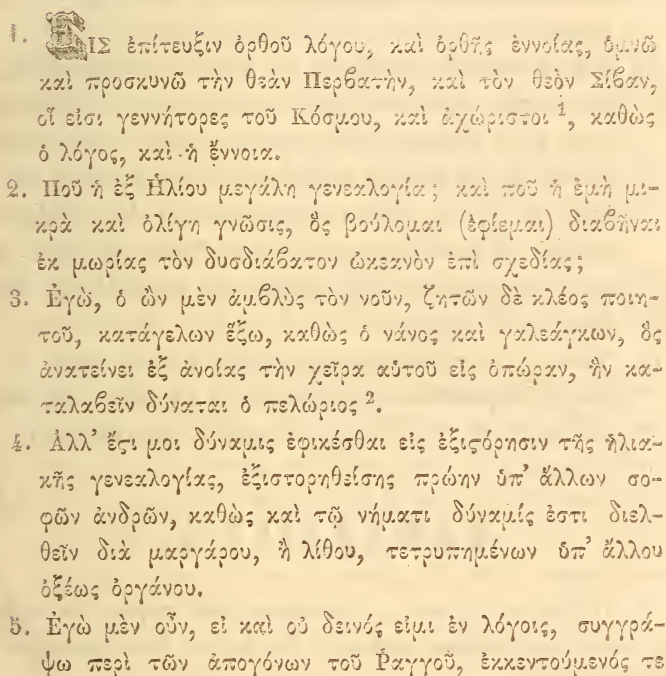 1. ΕΙΣ ἐπίτευξιν ὀρθοῦ λόγου, καὶ ὀρθῆς ἐννοίας, ὑμνῶ
καὶ προσκυνῶ τὴν θεὰν Περβατὴν, καὶ τὸν θεὸν Σίβαν,
οἵ εἰσι γεννήτορες τοῦ Κόσμου, καὶ ἀχώριστοι ¹, καθὼς
ὁ λόγος, καὶ ἡ ἔννοια.
2. Ποῦ ἡ ἐξ Ἡλίου μεγάλη γενεαλογία; καὶ ποῦ ἡ ἐμὴ μι-
κρὰ καὶ ὀλίγη γνῶσις, ὃς βούλομαι (ἐφίεμαι) διαβῆναι
ἐκ μωρίας τὸν δυσδιάβατον ὠκεανὸν ἐπὶ σχεδίας;
3. Ἐγὼ, ὁ ὢν μὲν ἀμβλὺς τὸν νοῦν, ζητῶν δὲ κλέος ποιη-
τοῦ, κατάγελων ἕξω, καθὼς ὁ νάνος καὶ γαλεάγκων, ὃς
ἀνατείνει ἐξ ἀνοίας τὴν χεῖρα αὑτοῦ εἰς ὀπώραν, ἣν κα-
ταλαβεῖν δύναται ὁ πελώριος ².
4. Ἀλλ' ἔϛι μοι δύναμις ἐφικέσθαι εἰς ἐξιϛόρησιν τῆς ἡλια-
κῆς γενεαλογίας, ἐξιστορηθείσης πρώην ὑπ' ἄλλων σο-
φῶν ἀνδρῶν, καθὼς καὶ τῷ νήματι δύναμίς ἐστι διελ-
θεῖν διὰ μαργάρου, ἢ λίθου, τετρυπημένων ὑπ' ἄλλου
ὀξέως ὀργάνου.
5. Ἐγὼ μὲν οὖν, εἰ καὶ οὐ δεινός εἰμι ἐν λόγοις, συγγρά-
ψω περὶ τῶν ἀπογόνων τοῦ Ῥαγγοῦ, ἐκκεντούμενός τε